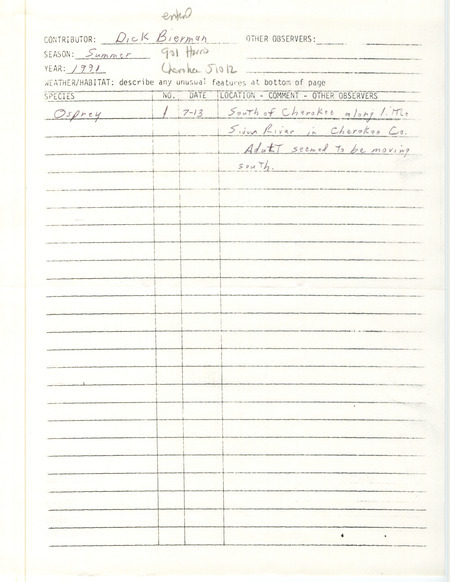 entered
CONTRIBUTOR: Dick Bierman OTHER OBSERVERS:
SEASON: Summer
YEAR: 1991 Cherokee 51012
WEATHER/HABITAT: describe any unusual features at bottom of page
SPECIES NO. DATE LOCATION - COMMENT - OTHER OBSERVERS
Osprey 1 7-13 South of Cherokee along Little
Sioux River in Cherokee Co.
Adult seemed to be moving
south.